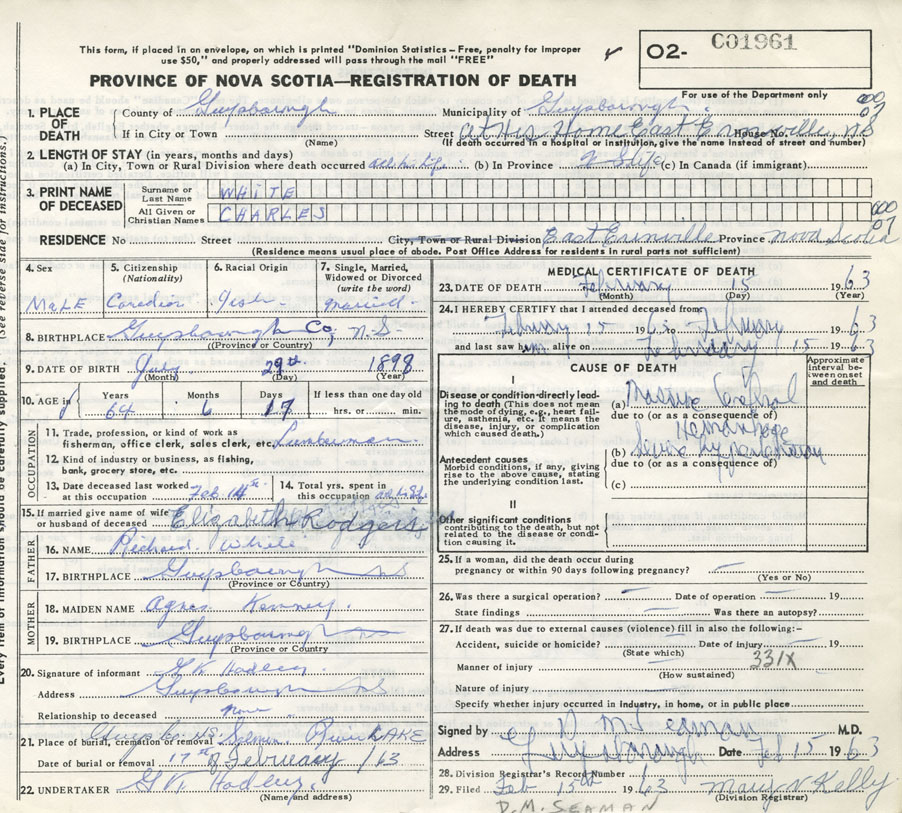 This form, if placed in an envelope, on which is printed "Dominion Statistics - Free, penalty for improper
use $50," and properly addressed will pass through the mail "FREE"
O2- C01961
For use of the Department only
PROVINCE OF NOVA SCOTIA—REGISTRATION OF DEATH
1. PLACE OF DEATH County of Guysborough Municipality of Guysborough
If in City or Town Street at His Home East Erinville, NS House No.
(Name) (If death occurred in a hospital or institution, give the name instead of street and number)
2. LENGTH OF STAY (in years, months and days)
(a) In City, Town or Rural Division where death occurred all his life (b) In Province (c) In Canada (if immigrant)
3. PRINT NAME OF DECEASED Surname or Last Name WHITE
All Given or Christian Names CHARLES
RESIDENCE No Street City, Town or Rural Division East Erinville Province Nova Scotia
(Residence means usual place of abode. Post Office Address for residents in rural parts not sufficient)
4. Sex Male
5. Citizenship (Nationality) Canadian
6. Racial Origin Irish
7. Single, Married, Widowed or Divorced (write the word) Married
8. BIRTHPLACE Guysborough Co, N.S.
(Province or Country)
9. DATE OF BIRTH 29th 1898
(Month) (Day) (Year)
10. AGE in Years 64 Months 6 Days 17 If less than one day old hrs. or min.
OCCUPATION
11. Trade, profession, or kind of work as fisherman, office clerk, sales clerk, etc. Lumberman
12. Kind of industry or business, as fishing, bank, grocery store, etc.
13. Date deceased last worked at this occupation Feb 14
14. Total yrs. spent in this occupation all his life
15. If married give name of wife or husband of deceased Elizabeth Rodgers
FATHER
16. NAME Richard White
17. BIRTHPLACE Guysborough NS
(Province or Country)
MOTHER
18. MAIDEN NAME Agnes Kenney
19. BIRTHPLACE Guysborough NS
(Province or Country)
20. Signature of informant G K Hadley
Address Guysborough NS
Relationship to deceased none
21. Place of burial, cremation or removal Guys Co NS LAKE
Date of burial or removal 17 February /63
22. UNDERTAKER Hadley
(Name and address)
MEDICAL CERTIFICATE OF DEATH
23. DATE OF DEATH February 15 1963
(Month) (Day) (Year)
24. I HEREBY CERTIFY that I attended deceased from
February 15 1963 to February 1963
and last saw him alive on February 15 1963
CAUSE OF DEATH
Approximate interval between onset and death
I
Disease or condition directly leading to death (This does not mean the mode of dying, e.g., heart failure, asthenia, etc. It means the disease, injury, or complication which caused death.)
(a) Massive Cerebral
due to (or as a consequence of)
Hemorrhage
Antecedent causes
Morbid conditions, if any, giving rise to the above cause, stating the underlying condition last.
(b) Severe hypertension
due to (or as a consequence of)
(c)
II
Other significant conditions
contributing to the death, but not related to the disease or condition causing it.
25. If a woman, did the death occur during
pregnancy or within 90 days following pregnancy?
(Yes or No)
26. Was there a surgical operation? Date of operation 19
State findings Was there an autopsy?
27. If death was due to external causes (violence) fill in also the following:-
Accident, suicide or homicide? Date of injury 19
(State which)
331X
Manner of injury
(How sustained)
Nature of injury
Specify whether injury occurred in industry, in home, or in public place
Signed by D M Seaman M.D.
Address Guysborough Date Feb 15 1963
28. Division Registrar's Record Number
29. Filed Feb 15th 1963 Mary N Kelly
(Division Registrar)
D.M. SEAMAN
(See reverse side for instructions.)
Every item of information should be carefully supplied.